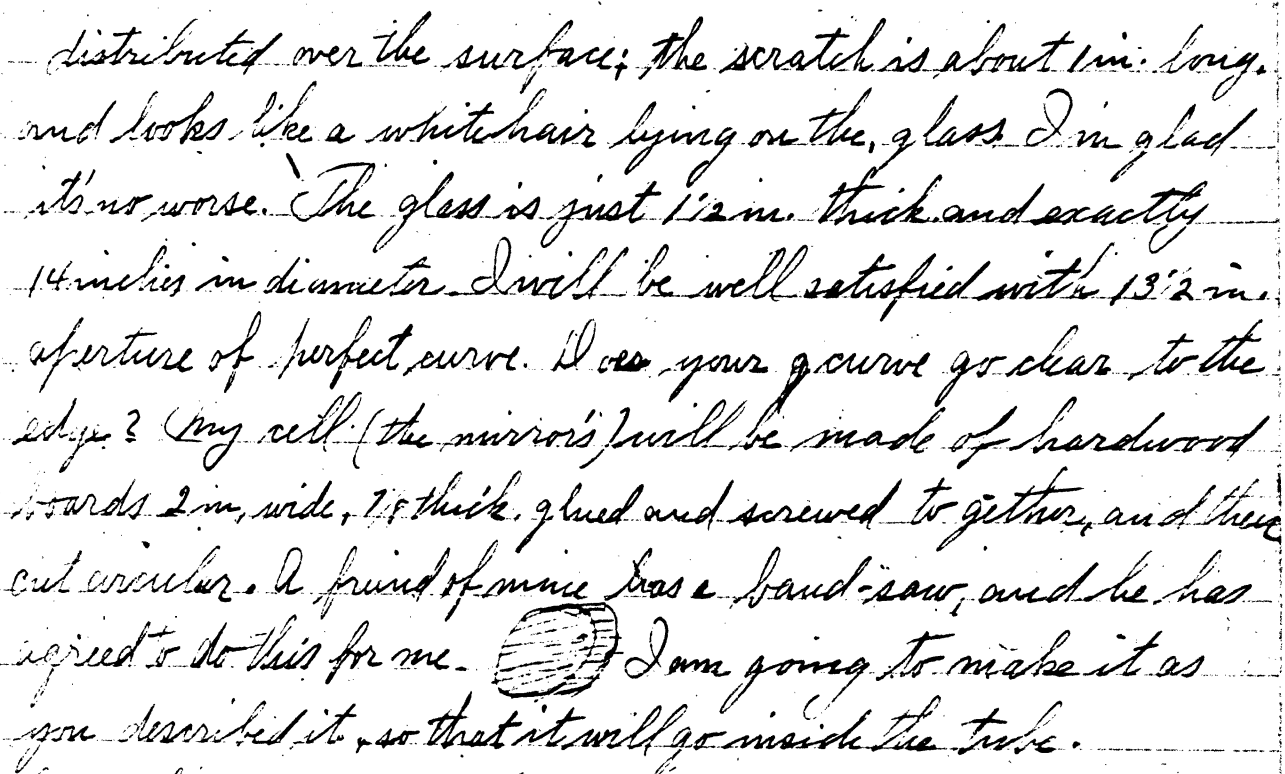 distributed over the surface; the scratch is about 1 in. long.
and looks like a white hair lying on the, glass I'm glad
it's no worse. The glass is just 1 1/2 in. thick and exactly
14 inches in diameter. I will be well satisfied with 13 1/2 in.
aperture of perfect curve. Does your curve go clear to the
edge? My cell (the mirror's) will be made of hardwood
boards 2 in, wide, 7/8 thick, glued and screwed to gether, and then
cut circular. A friend of mine has a band-saw, and he has
agreed to do this for me. I am going to make it as
you described it, so that it will go inside the tube.